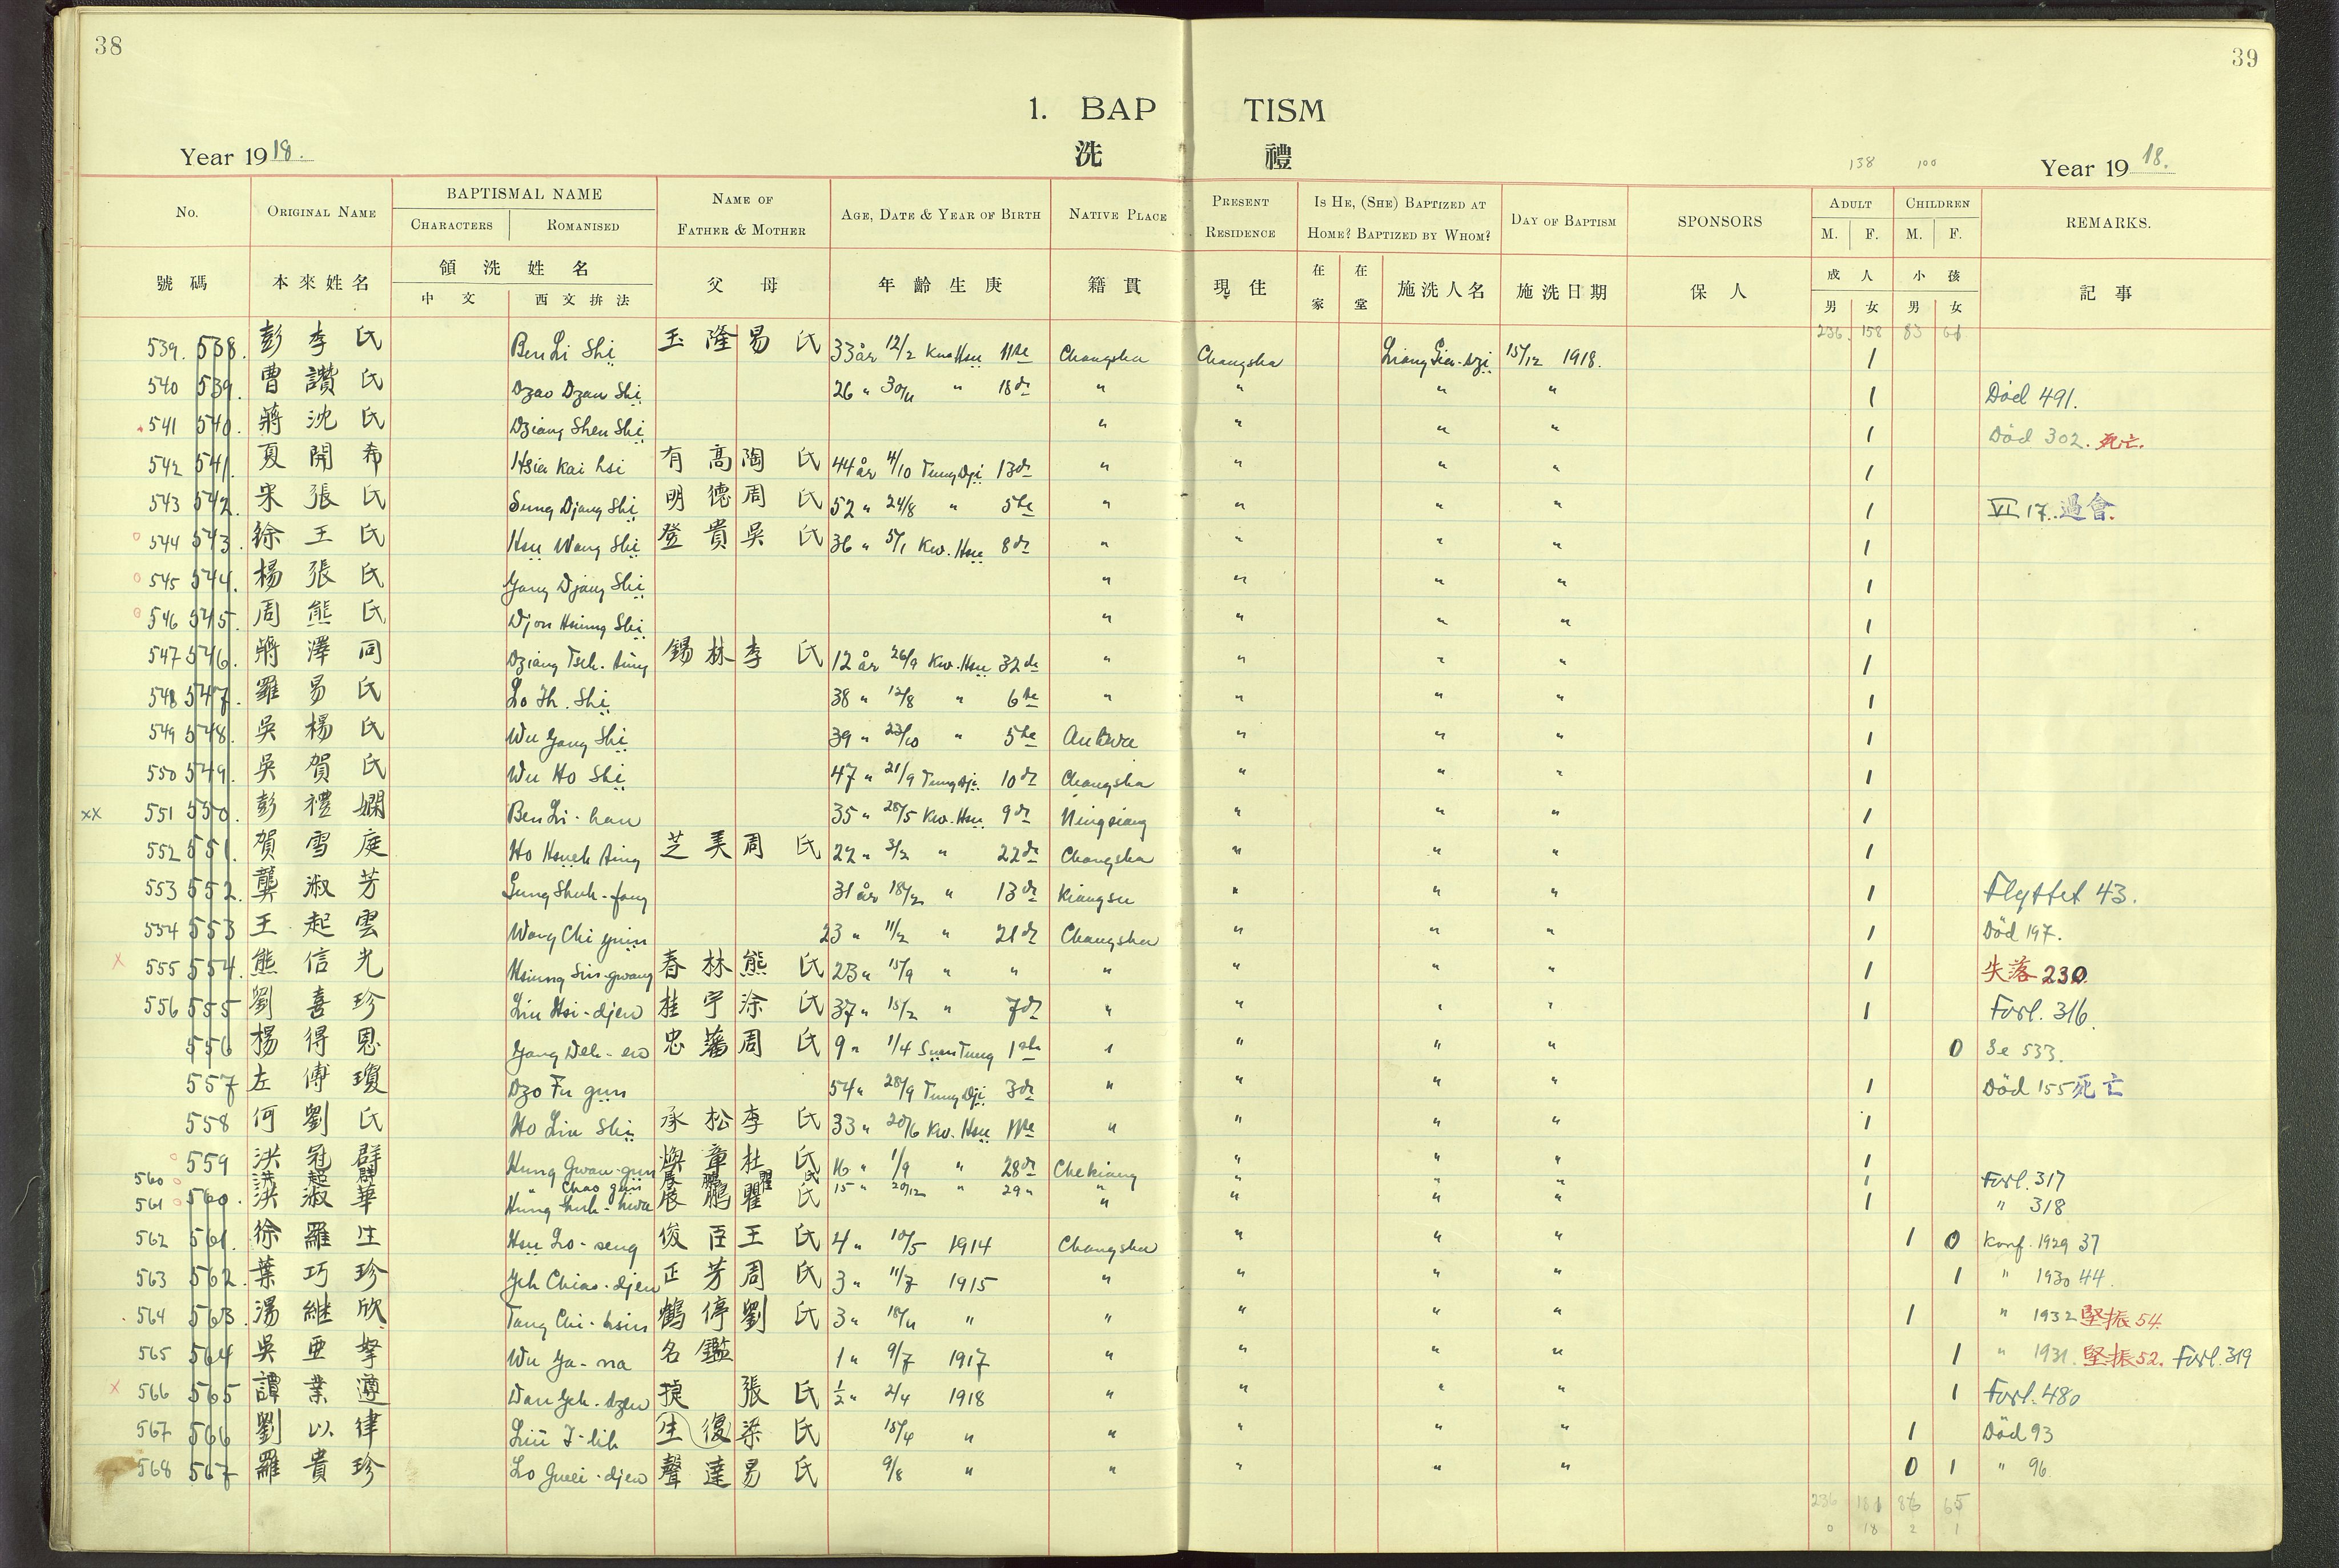 38
39
1. BAP TISM
洗 禮
Year 19 18.
138 100
Year 19 18.
No. ORIGINAL NAME BAPTISMAL NAME CHARACTERS ROMANISED NAME OF FATHER & MOTHER AGE, DATE & YEAR OF BIRTH NATIVE PLACE PRESENT RESIDENCE IS HE, (SHE) BAPTIZED AT HOME? BAPTIZED BY WHOM? DAY OF BAPTISM SPONSORS ADULT M. F. CHILDREN M. F. REMARKS.
號碼 本來姓名 領洗姓名 中文 西文拚法 父母 年齡生庚 籍貫 現住 在家 在堂 施洗人名 施洗日期 保人 成人 男 女 小孩 男 女 記事
236 158 83 61
539. 538. 彭李氏 Ben Li Shi 玉隆易氏 33 år 12/2 Kwa Hsu 11te Changsha Changsha Liang Gia-dzi 15/12 1918. 1
540 539. 曹讚氏 Dzao Dzan Shi 26 " 30/11 " 18de " " " " 1 Död 491.
541 540. 蔣沈氏 Dziang Shen Shi " " " " 1 Död 302. 死亡.
542 541. 夏開希 Hsia Kai hsi 有高陶氏 44 år 4/10 Tung Dji 13de " " " " 1
543 542. 宋張氏 Sung Djang Shi 明德周氏 52 " 24/8 " 5te " " " " 1 VI 17. 過會.
544 543. 徐王氏 Hsu Wang Shi 登貴吳氏 36 " 5/1 Kw. Hsu 8de " " " " 1
545 544. 楊張氏 Yang Djang Shi " " " " 1
546 545. 周熊氏 Djou Hsiung Shi " " " " 1
547 546. 蔣澤同 Dziang Tseh-tung 錫林李氏 12 år 26/9 Kw. Hsu 32de " " " " 1
548 547. 羅易氏 Lo Ih. Shi 38 " 12/8 " 6te " " " " 1
549 548. 吳楊氏 Wu Yang Shi 39 " 23/10 " 5te Anhwei " " " 1
550 549. 吳賀氏 Wu Ho Shi 47 " 21/9 Tung dji 10de Changsha " " " 1
xx 551 550. 彭禮嫻 Ben Li-han 35 " 28/5 Kw. Hsu 9de Ningsiang " " " 1
552 551. 賀雪庭 Ho Hsueh ting 芝美周氏 22 " 3/2 " 22de Changsha " " " 1
553 552. 龔淑芳 Gung Shuh-fang 31 år 18/2 " 13de Kiangsu " " " 1 Flyttet 43.
554 553 王起雲 Wang Chi yuin 23 " 11/2 " 21de Changsha " " " 1 Död 197.
x 555 554. 熊信光 Hsiung Sin-gwang 春林熊氏 23 " 15/9 " " " " " " 1 失落 230.
556 555 劉喜珍 Liu Hsi-djen 桂宇涂氏 37 " 15/2 " 7de " " " " 1 Forl. 316.
556 楊得恩 Yang Deh-en 忠藩周氏 9 " 1/4 Suan Tung 1ste " " " " 0 Se 533.
557 左傅瓊 Dzo Fu gun 54 " 28/9 Tung Dji 3de " " " " 1 Död 155 死亡
558 何劉氏 Ho Liu Shi 承松李氏 33 " 20/6 Kw. Hsu 11te " " " " 1
559 洪冠群 Hung Gwan-gun 煥章杜氏 16 " 1/9 " 28de Chekiang " " " 1
560 洪超群 " Chao gun 展鵬瞿氏 15 " 20/12 " 29 " " " " " 1 Forl. 317
561 560. 洪淑華 Hung Shuh-hwa 展鵬瞿氏 " " " " 1 " 318
562 561. 徐羅生 Hsu Lo-seng 俊臣王氏 4 " 10/5 1914 Changsha " " " 1 0 Konf. 1929 37
563 562. 葉巧珍 Yeh Chiao-djen 正芳周氏 3 " 11/7 1915 " " " " 1 " 1930 44.
564 563. 湯継欣 Tang Chi-hsin 鶴停劉氏 3 " 18/11 " " " " " 1 " 1932 堅振 54.
565 564 吳亜拏 Wu Ya-na 名鑑 1 " 9/7 1917 " " " " 1 " 1931. 堅振 52. Forl. 319
x 566 565 譚業遵 Dan Yeh-dzun 張氏 ½ " 2/4 1918 " " " " 1 Forl. 480
567 566 劉以律 Liu I-lih 生復梁氏 15/4 " " " " " 1 Död 93
568 567 羅貴珍 Lo Guei-djen 聲達易氏 9/8 " " " " " 0 1 " 96
236 181 86 65
0 18 2 1